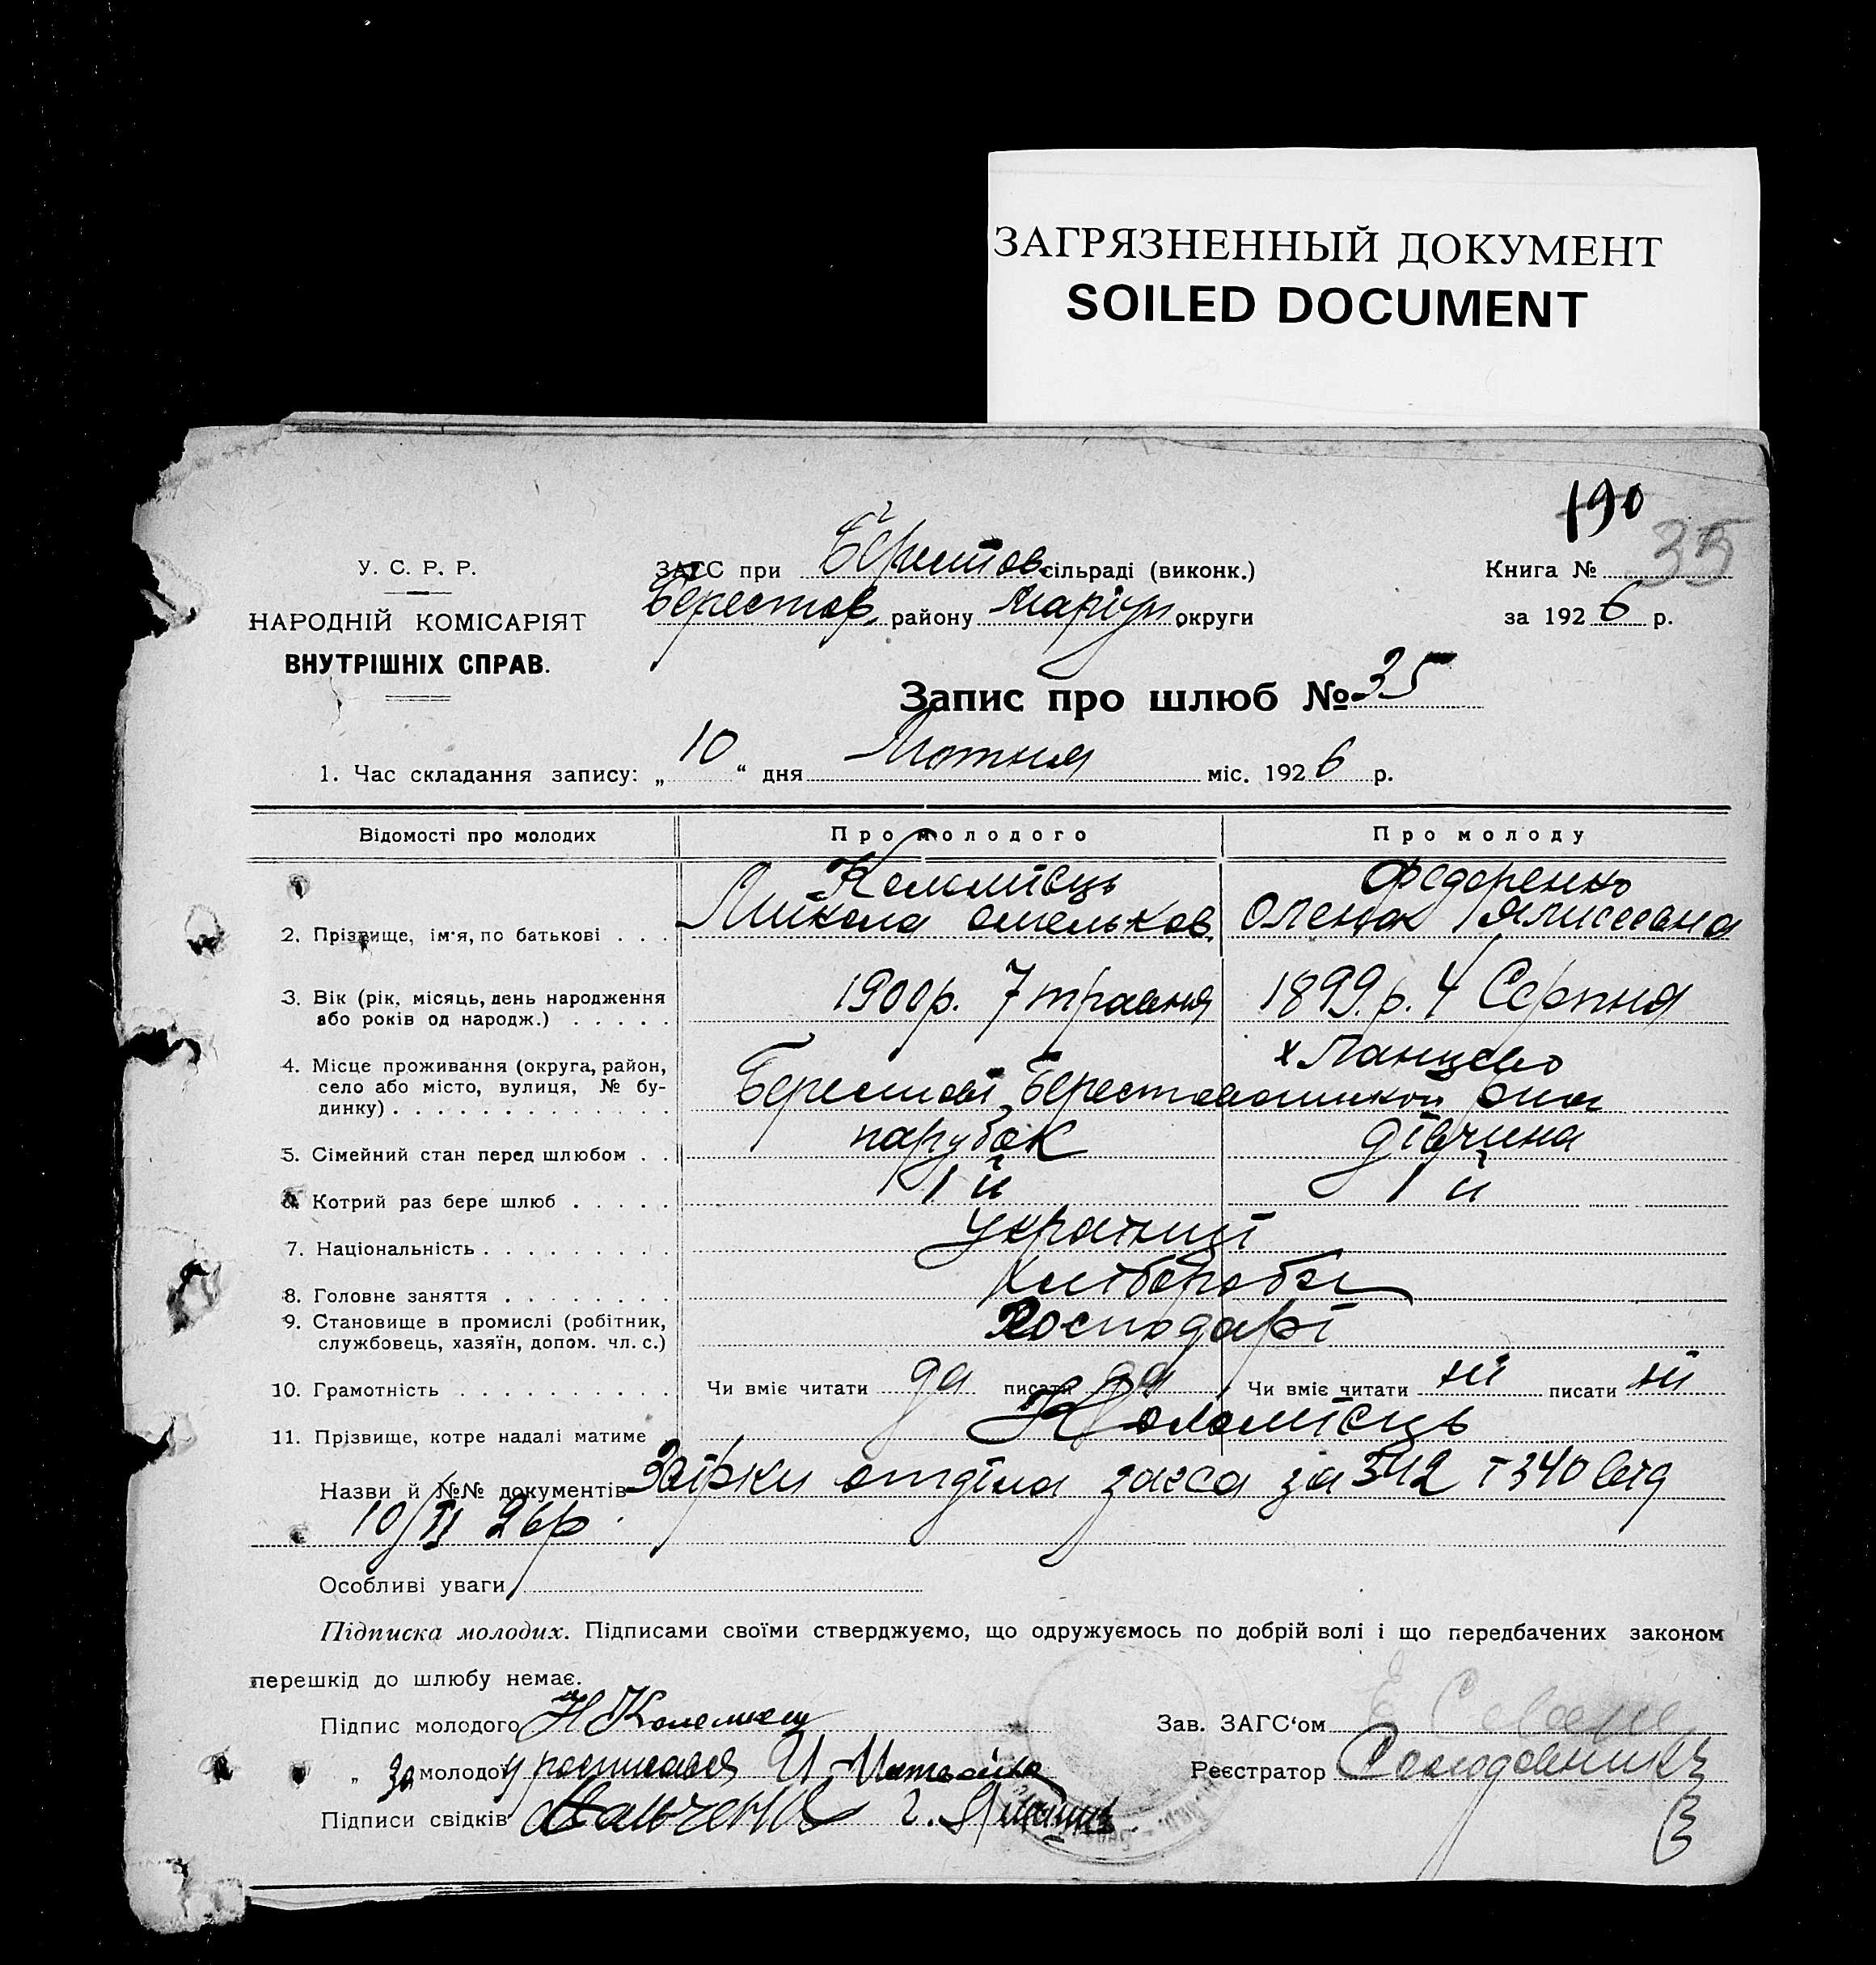 ЗАГРЯЗНЕННЫЙ ДОКУМЕНТ
SOILED DOCUMENT
190
35
У. С. Р. Р.
НАРОДНІЙ КОМІСАРІЯТ
ВНУТРІШНІХ СПРАВ.
ЗАГС при Берестов сільраді (виконк.)
Берестов. району Маріуп. округи
Книга №
за 1926 р.
Запис про шлюб № 35
1. Час складання запису: „ 10 “ дня Лютня міс. 1926 р.
Відомості про молодих Про молодого Про молоду
Коломієць Федоренко
2. Прізвище, ім'я, по батькові . . . Микола Омельков. Олена
3. Вік (рік, місяць, день народження 1900 р. 7 травня 1899 р. 4 Серпня
або років од народж.) . . . . .
4. Місце проживання (округа, район, х Панцево
село або місто, вулиця, № бу-
динку) . . . . . . . . . . . . .
5. Сімейний стан перед шлюбом . . парубок дівчина
6. Котрий раз бере шлюб . . . . . 1й 1й
7. Національність . . . . . . . . . українці
8. Головне заняття . . . . . . . . хлібороби
9. Становище в промислі (робітник, Господарі
службовець, хазяїн, допом. чл. с.)
10. Грамотність . . . . . . . . . . . Чи вміє читати да писати да Чи вміє читати ні писати ні
11. Прізвище, котре надалі матиме Коломієць
Назви й №№ документів отділа загса за 342 і 340 від
10/II 26р.
Особливі уваги
Підписка молодих. Підписами своїми стверджуємо, що одружуємось по добрій волі і що передбачених законом
перешкід до шлюбу немає.
Підпис молодого Н Коломиец
Зав. ЗАГС‘ом
„ За молоду росписався И
Реєстратор
Підписи свідків